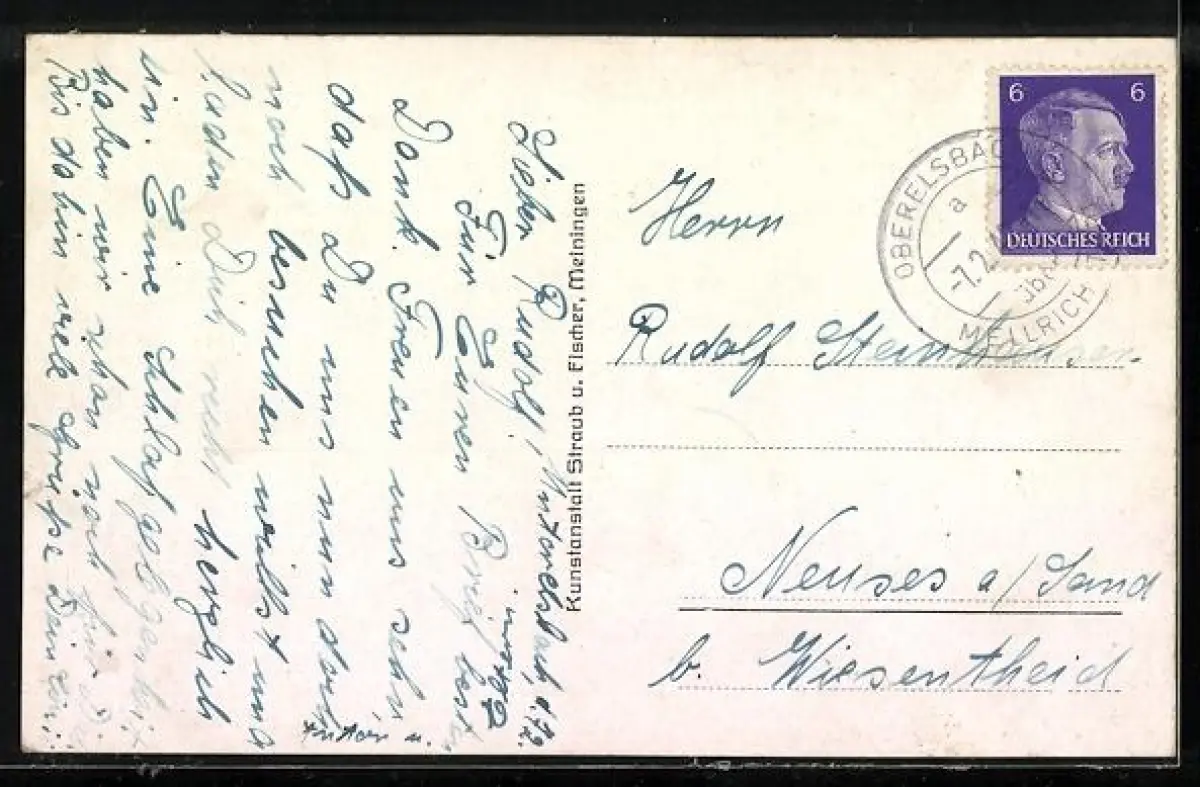 Lieber Rudolf! Unterelsbach
Für Euren Brief besten
Dank. Freuen uns sehr
daß Du uns nun doch
noch besuchen willst und
laden Dich recht herzlich
ein. Eine Schlafgelegenheit
haben wir schon noch für
Bis dahin viele Grüße
Kunstanstalt Straub u. Fischer, Meiningen
6 6
DEUTSCHES REICH
OBERELSBACH
a
-7.2
MELLRICH
Herrn
Rudolf Steinhäuser
Neuses a/Sand
b. Wiesentheid